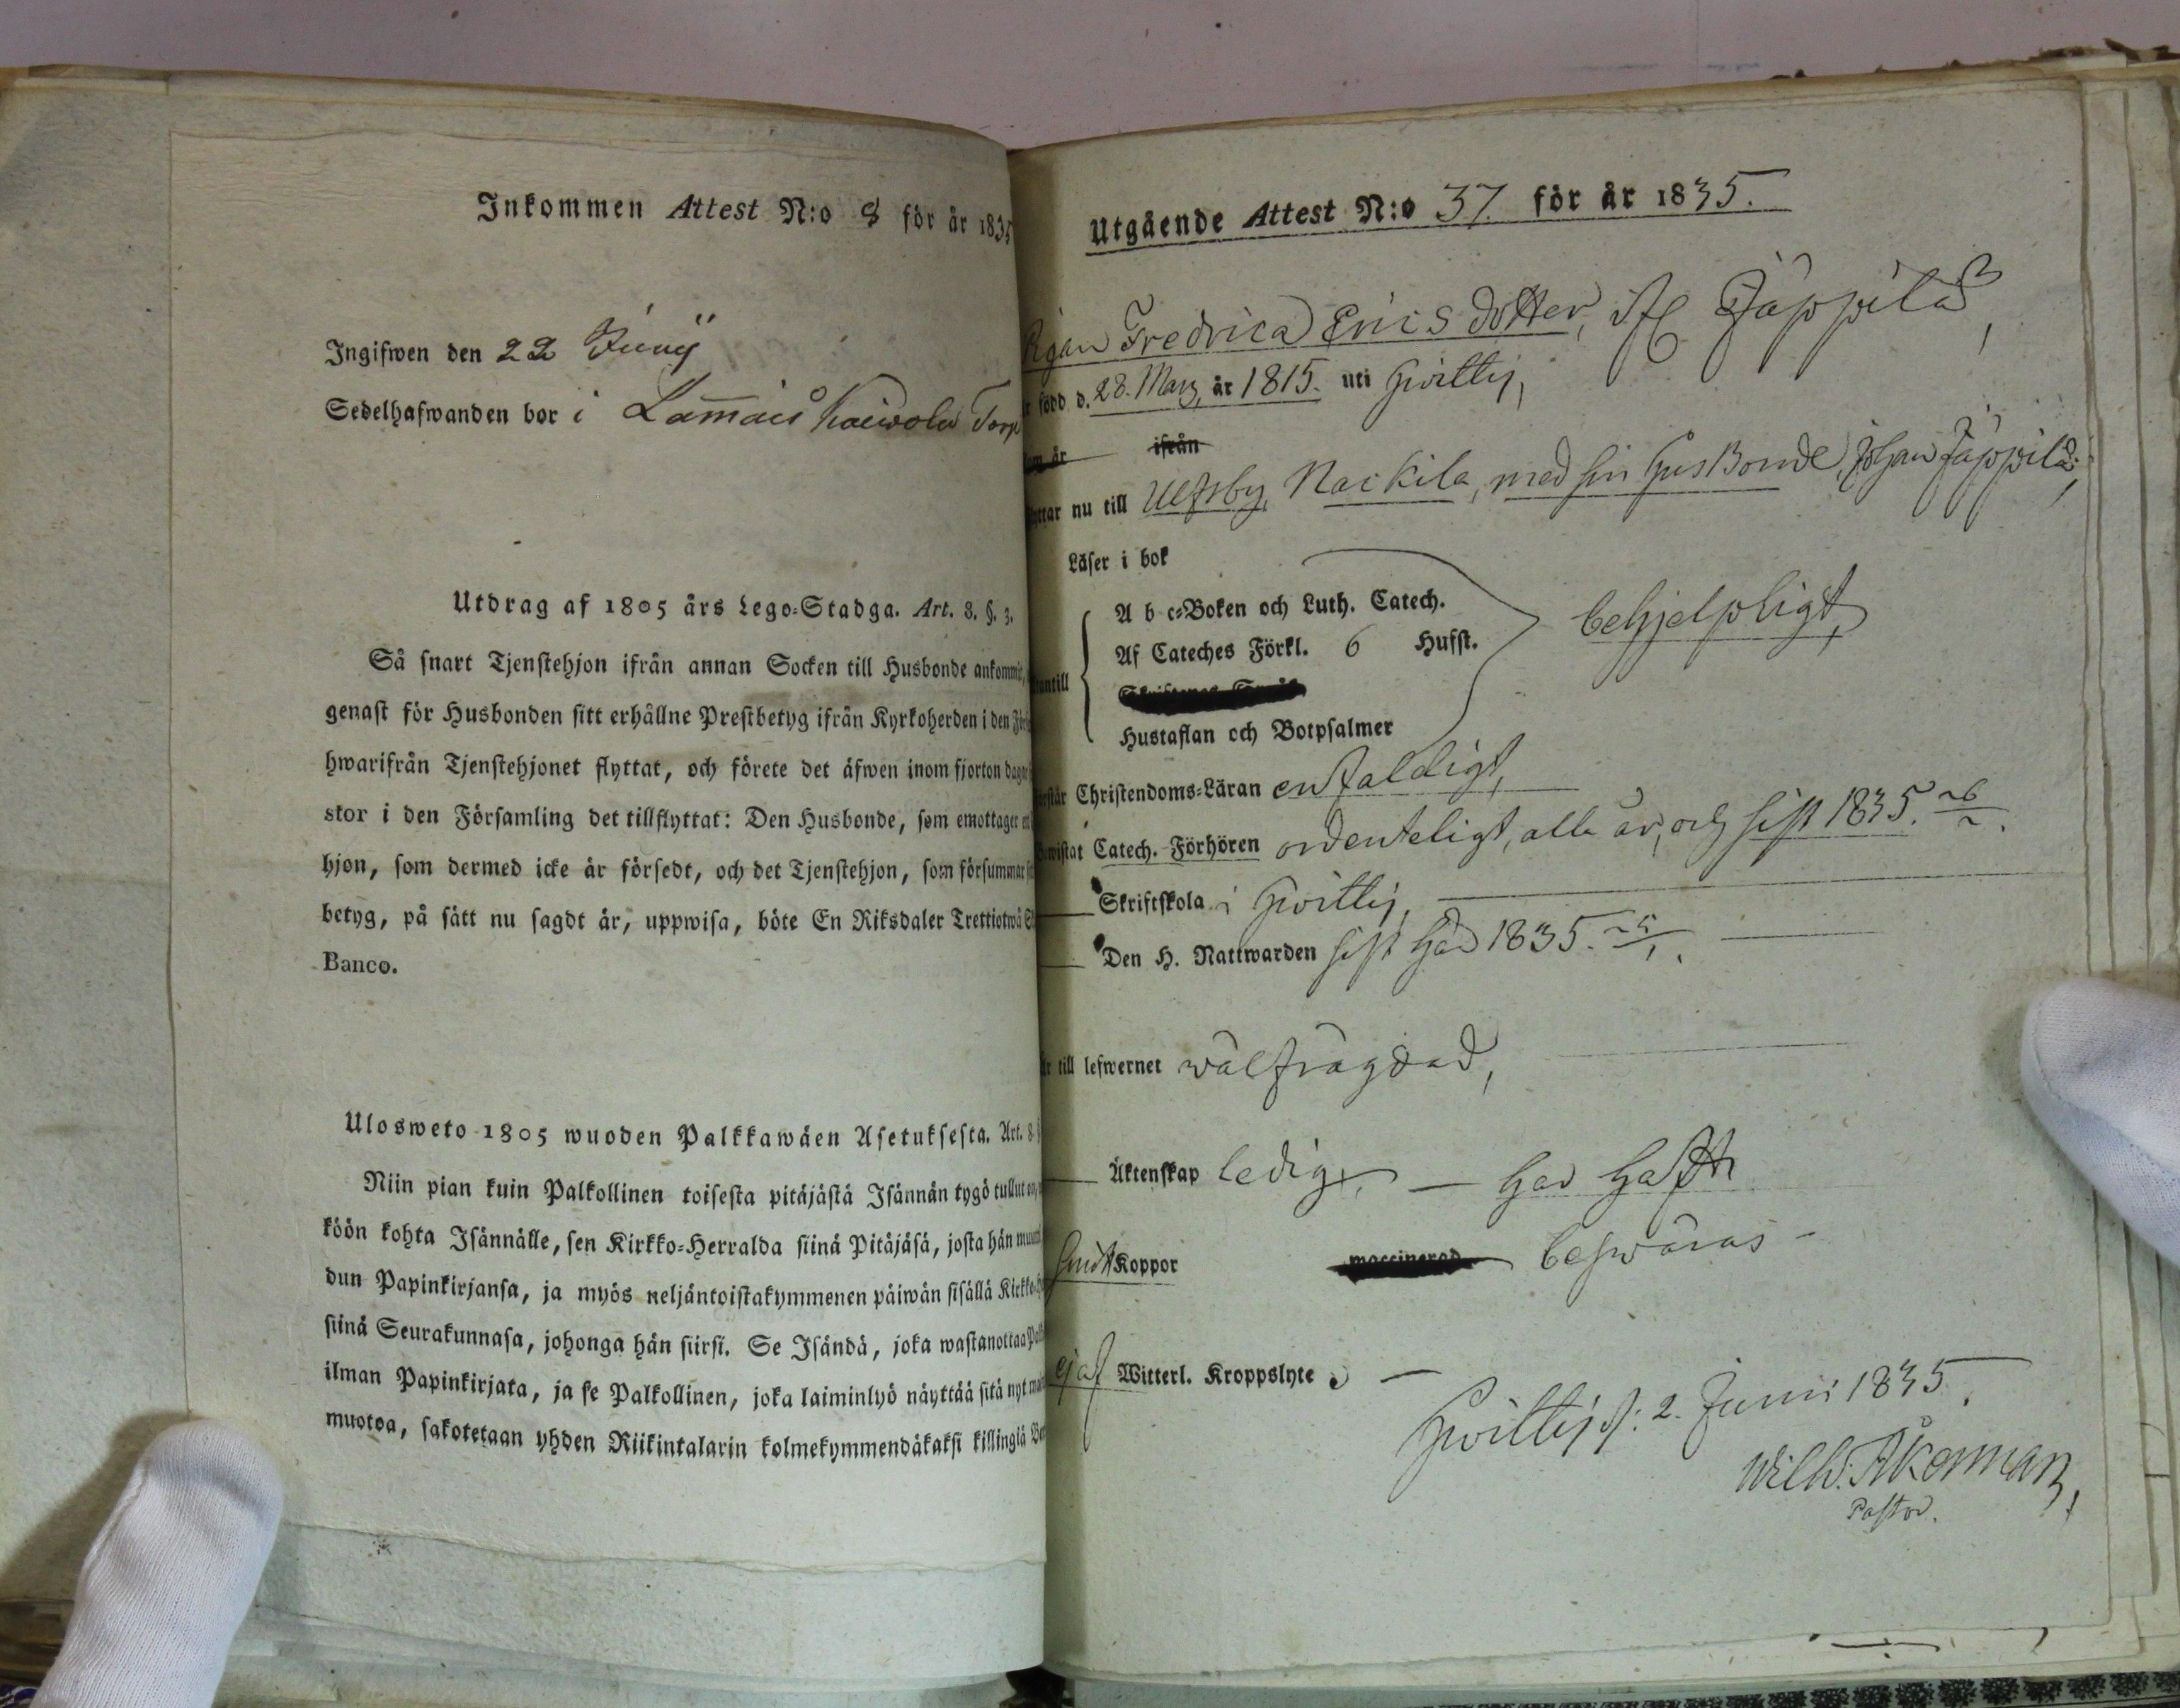 Inkommen Attest N:o 8 för år 1835
Ingifwen den 22 Junij
Sedelhafwanden bor i Lamais Kaiwola Torp
Utdrag af 1805 års Lego-Stadga. Art. 8. §. 3.
Så snart Tjenstehjon ifrån annan Socken till Husbonde ankommit,
genast för Husbonden sitt erhållne Prestbetyg ifrån Kyrkoherden i den
hwarifrån Tjenstehjonet flyttat, och förete det äfwen inom fjorton dagar
stor i den Församling det tillflyttat: Den Husbonde, som emottager
hjon, som dermed icke är försedt, och det Tjenstehjon, som försummar
betyg, på sätt nu sagdt är, uppwisa, böte En Riksdaler Trettiotwå
Banco.
Ulosweto 1805 wuoden Palkkawäen Asetuksesta. Art. 8
Niin pian kuin Palkollinen toisesta pitäjästä Isännän tygö tullut on,
köön kohta Isännälle, sen Kirkko-Herralda siinä Pitäjäsä, josta hän
dun Papinkirjansa, ja myös neljäntoistakymmenen päiwän sisällä
siinä Seurakunnasa, johonga hän siirsi. Se Isändä, joka wastanottaa
ilman Papinkirjata, ja se Palkollinen, joka laiminlyö näyttää sitä nyt
muotoa, sakotetaan yhden Riikintalarin kolmekymmendäkaksi killingiä
Utgående Attest N:o 37. för år 1835.
Pigan Fredrica Ericsdotter, Jäppilä,
är född d. 28. Mars, år 1815. uti Hvittis,
som är ifrån
flyttar nu till Ulfsby, Nackila, med sin Husbonde, Johan Jäppilä;
Läser i bok
A b c-Boken och Luth. Catech.
Af Cateches Förkl. 6 Hufst. behjelpligt,
utantill
Hustaflan och Botpsalmer
förstår Christendoms-Läran enfaldigt,
Bewistat Catech. Förhören ordenteligt, alla år, och sist 1835.
Skriftskola i Hvittis,
Den H. Nattwarden sist här 1835.
Är till lefwernet wälfrägdad,
Äktenskap ledig, — har haft
Koppor vaccinerad beswäras -
ej af Witterl. Kroppslyte —
Hvittis d: 2. Junii 1835.
Wilh. Åkerman,
Pastor.